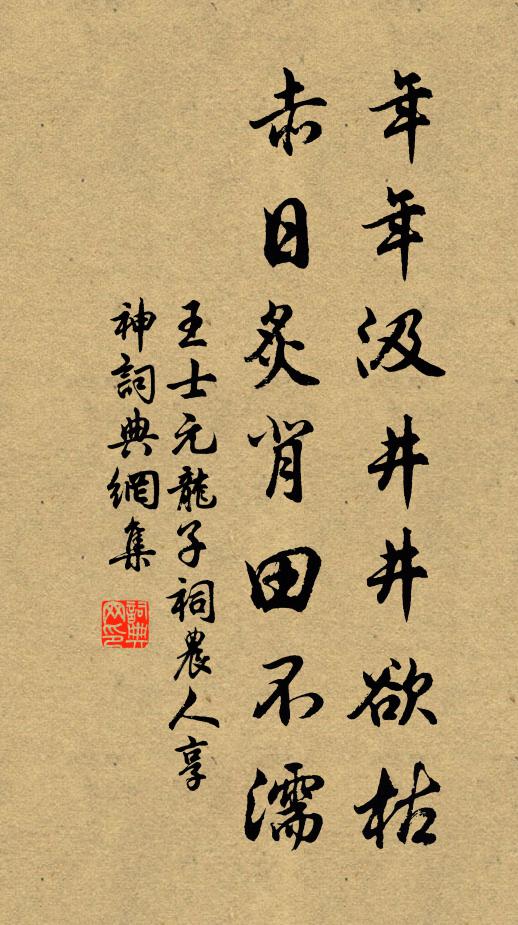 年年汲井井欲枯
赤日炙背田不濡
王士元龍子祠農人享
神詞典網集
詞典
网印